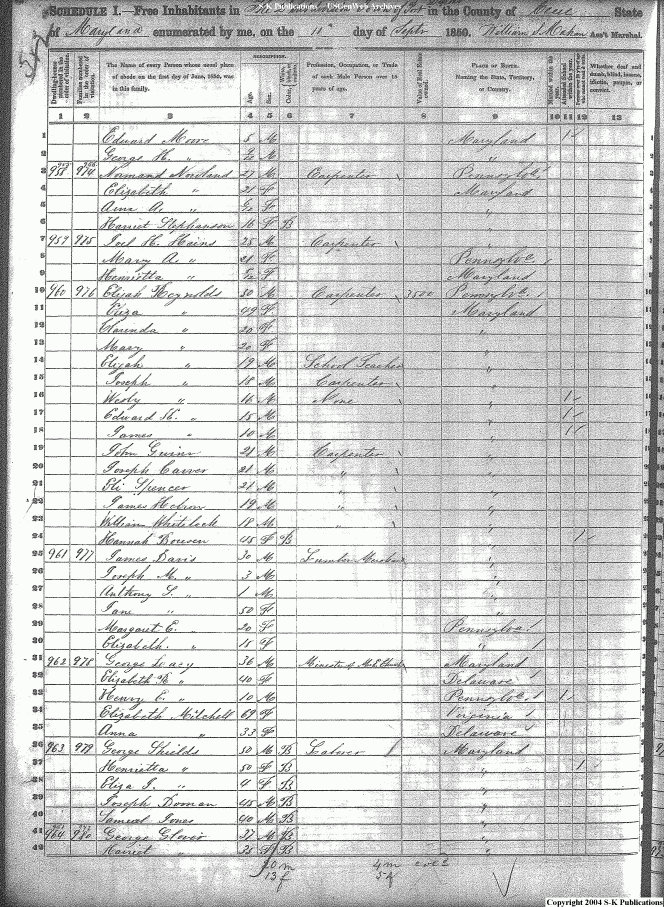 S-K Publications - USGenWeb Archives
SCHEDULE I.—Free Inhabitants in in the County of Cecil State
of Maryland enumerated by me, on the 11 day of Septr 1850. William Ass't Marshal.
DESCRIPTION.
Dwelling-houses numbered in the order of visitation. Families numbered in the order of visitation. The Name of every Person whose usual place of abode on the first day of June, 1850, was in this family. Age. Sex. Color, Profession, Occupation, or Trade of each Male Person over 15 years of age. Value of Real Estate owned. PLACE OF BIRTH. Naming the State, Territory, or Country. Married within the year. Attended School within the year. Whether deaf and dumb, blind, insane, idiotic, pauper, or convict.
1 2 3 4 5 6 7 8 9 10 11 12 13
1 Edward Moore 5 M Maryland 1
2 George H. " M "
3 958 974 Normand Nowland 27 M Carpenter Pennsylva
4 Elizabeth " 21 F Maryland
5 Ann A. " F "
6 Harriet Stephanson 16 F B "
7 959 975 Joel H. Hains 25 M Carpenter "
8 Mary A. " 21 F Pennsylva
9 Henrietta " F Maryland
10 960 976 Elijah Reynolds 50 M Carpenter 7500 Pennsylva
11 Eliza " 49 F Maryland
12 Clarinda " 20 F "
13 Mary " 20 F "
14 Elijah " 19 M School Teacher "
15 Joseph " 18 M Carpenter "
16 Wesly " 16 M None " 1
17 Edward H. " 15 M " 1
18 James " 10 M " 1
19 John Guinn 21 M Carpenter "
20 Joseph Carver 21 M " "
21 Eli Spencer 21 M " "
22 James Hebron 19 M " "
23 William Whitelock 18 M " "
24 Hannah Bowsen 45 F B " 1
25 961 977 James Davis 30 M Lumber Merchant "
26 Joseph M. " 3 M "
27 Anthony S. " 1 M "
28 Jane " 50 F "
29 Margaret E. " 20 F Pennsylva
30 Elizabeth. " 18 F "
31 962 978 George Lacy 36 M Minister of M.E. Church Maryland
32 Elizabeth R " 40 F Delaware
33 Henry E. " 10 M Pennsylva 1
34 Elizabeth Mitchell 69 F Virginia
35 Anna " 33 F Delaware
36 963 979 George Shields 50 M B Laborer Maryland
37 Henrietta " 50 F B " 1
38 Eliza J. " 4 F B "
39 Joseph Boman 45 M B "
40 Samuel Jones 40 M B "
41 964 980 George Glover 37 M B "
42 Harriet " 35 F B "
20 m 4 m
13 f 5
Copyright 2004 S-K Publications